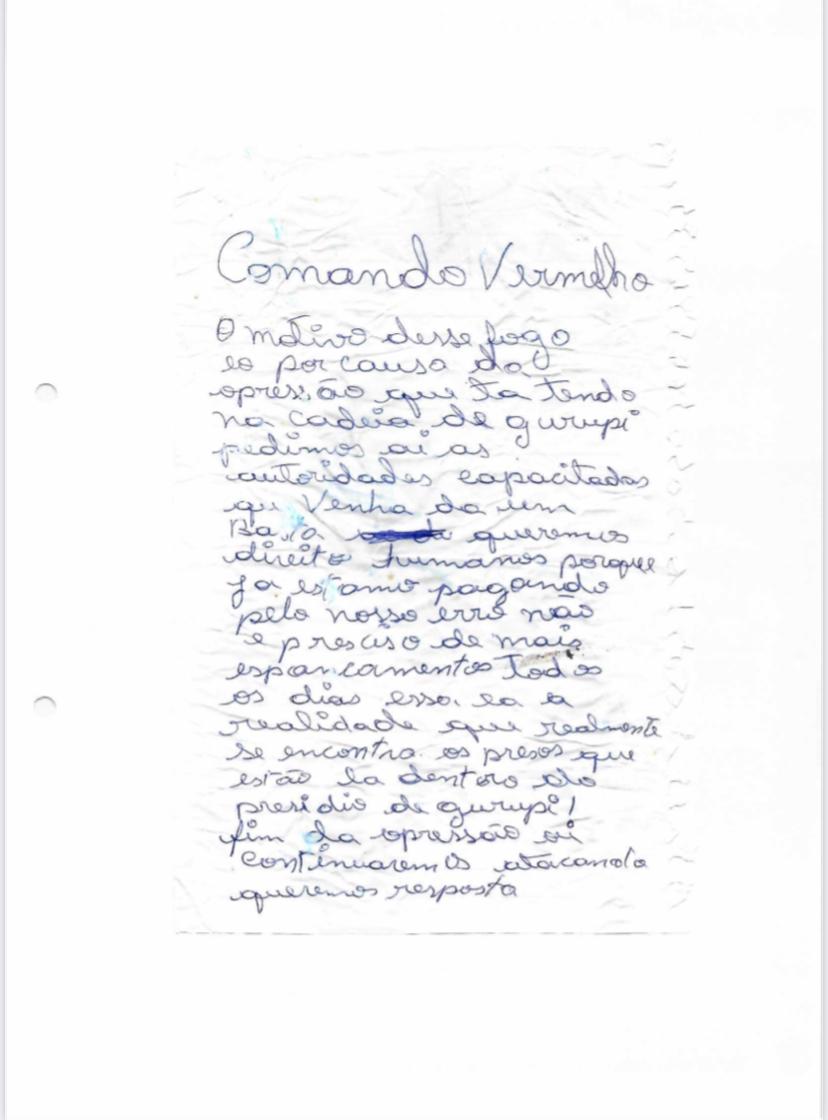 Comando Vermelho
O motivo desse fogo
eo por causa da
opressão que ta tendo
na cadeia de gurupi
pedimos ai as
autoridades capacitadas
qu Venha da um
queremos
direito humanos porque
ja estamo pagando
pelo nosso erro não
e presciso de mais
espancamentos todos
os dias esso. ea a
realidade que realmente
se encontra os presos que
estão la dentoro do
presidio de gurupi!
fim da opressão ou
continuaremos atacando
queremos resposta